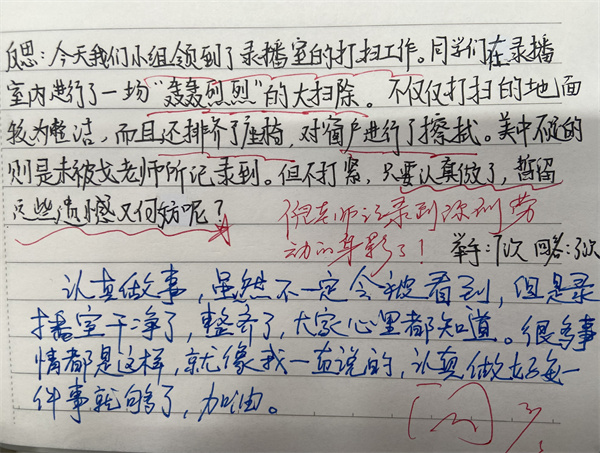 反思：今天我们小组领到了录播室的打扫工作。同学们在录播
室内进行了一场“轰轰烈烈”的大扫除。不仅仅打扫的地面
较为整洁，而且还排齐了座椅，对窗户进行了擦拭。美中不足的
则是未被戈老师所记录到。但不打紧，只要认真做了，暂留
这些遗憾又何妨呢？
倪老师记录到你们劳
动的身影了！
举手：7次 回答：3次
认真做事，虽然不一定会被看到，但是录
播室干净了，整齐了，大家心里都知道。很多事
情都是这样，就像我一直说的，认真做好每一
件事就够了，加油。